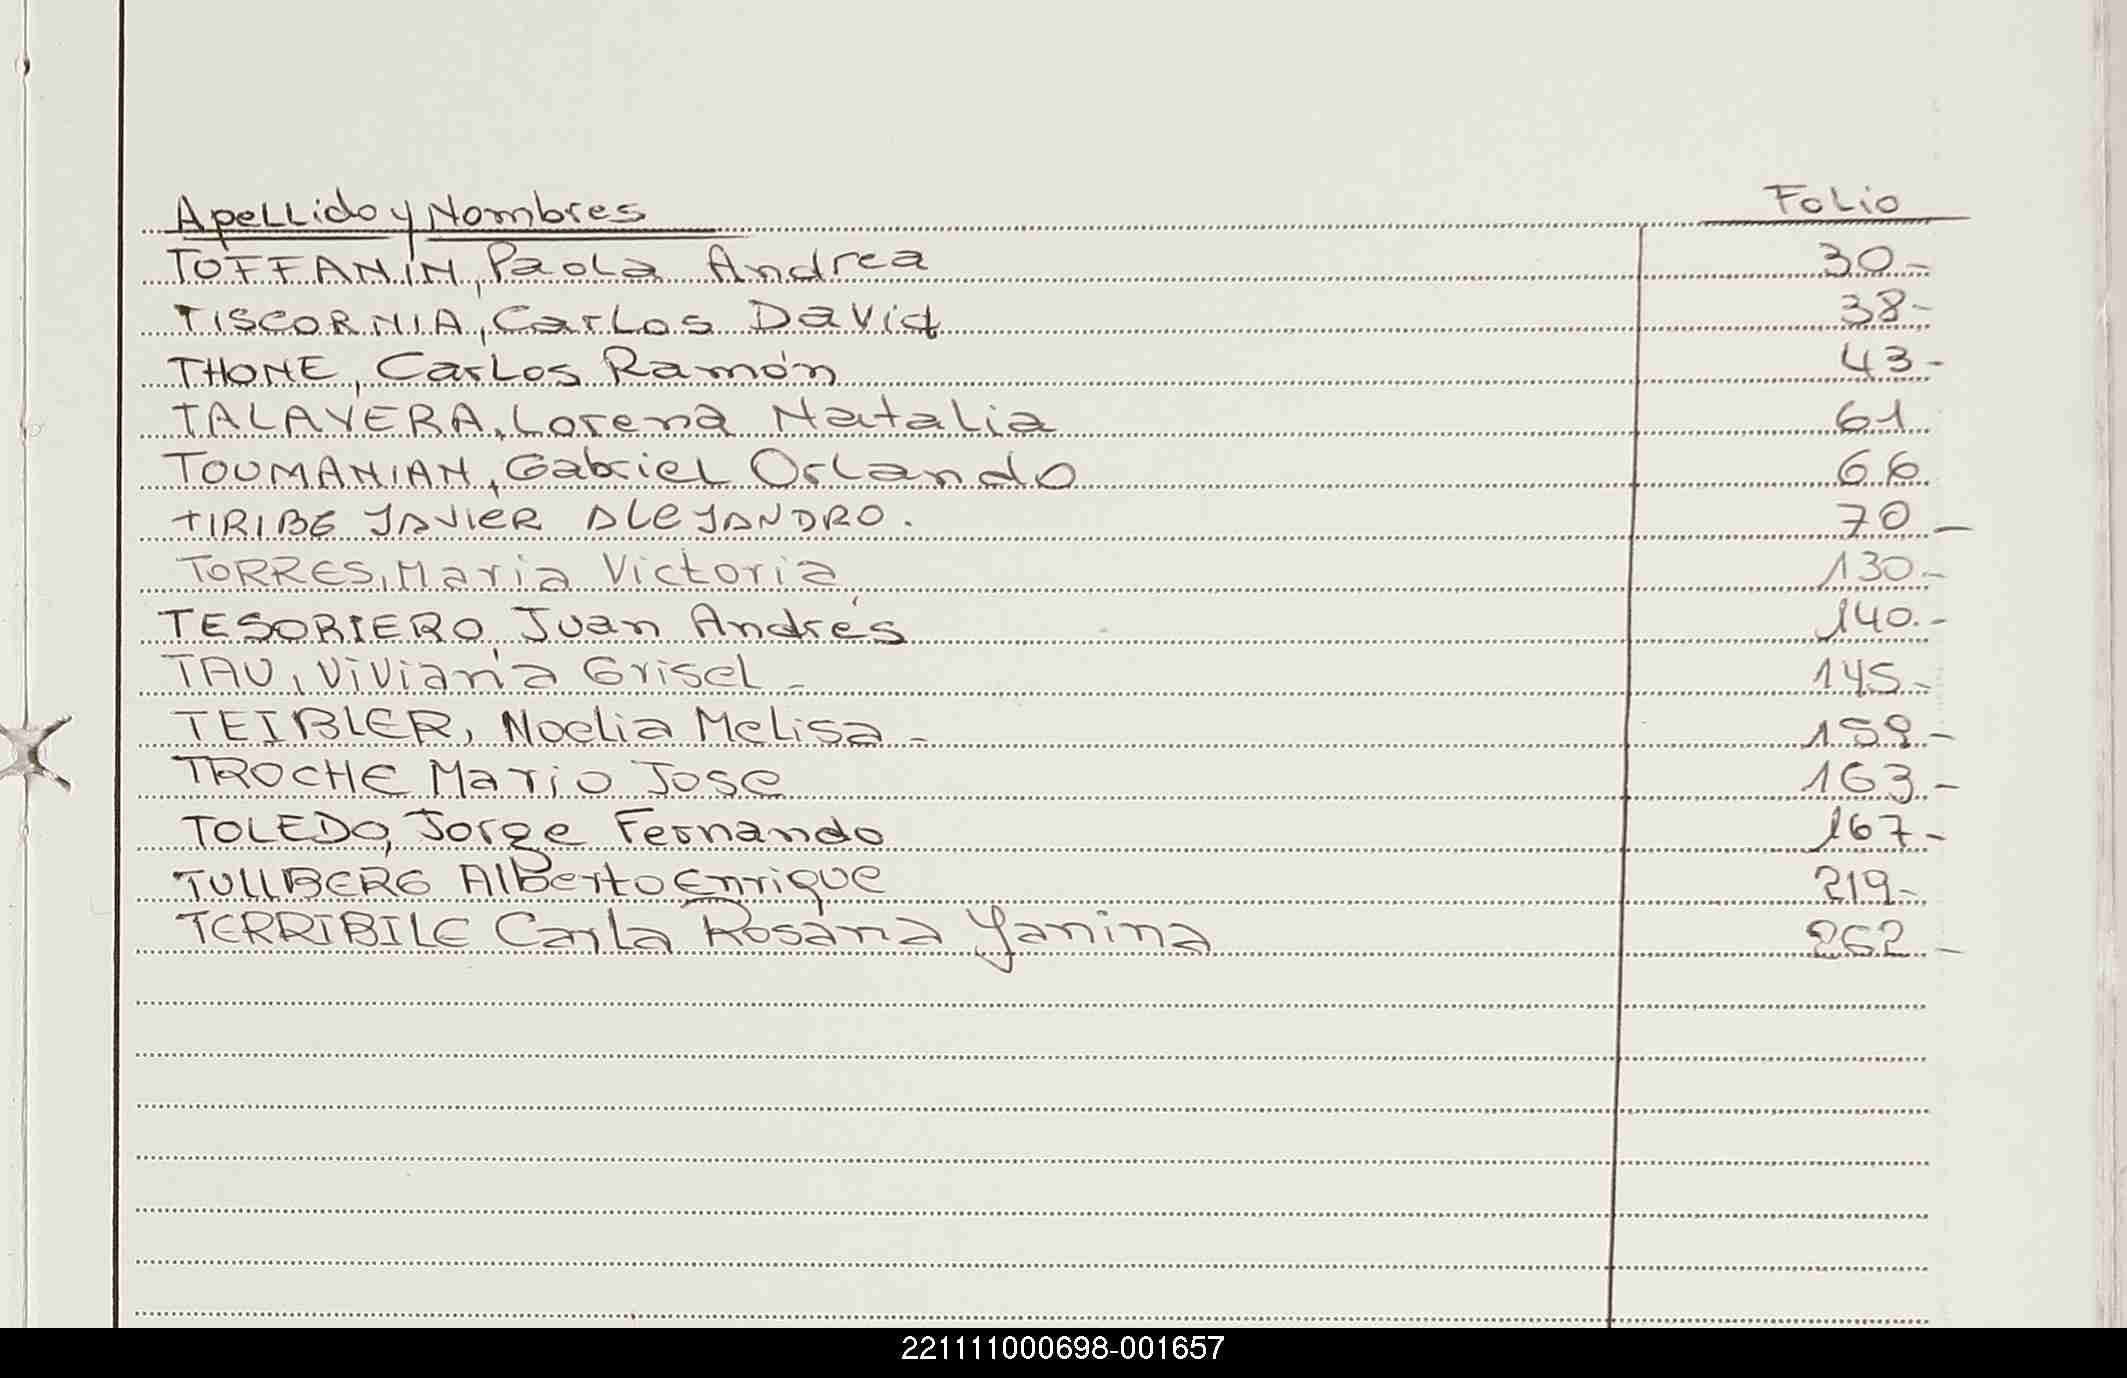 Apellido y Nombres Folio
TOFFANIN, Paola Andrea 30-
TISCORNIA, Carlos David 38-
THONE, Carlos Ramón 43-
TALAVERA, Lorena Natalia 61
TOUMANIAN, Gabriel Orlando 66
TIRIBE JAVIER ALEJANDRO. 70-
TORRES, Maria Victoria 130-
TESORIERO, Juan Andrés 140.-
TAU, Viviana Grisel- 145-
TEIBLER, Noelia Melisa- 159-
TROCHE Mario Jose 163-
TOLEDO, Jorge Fernando 167-
TULLBERG Alberto Enrique 219-
TERRIBILE Carla Rosana Yanina 262-
221111000698-001657